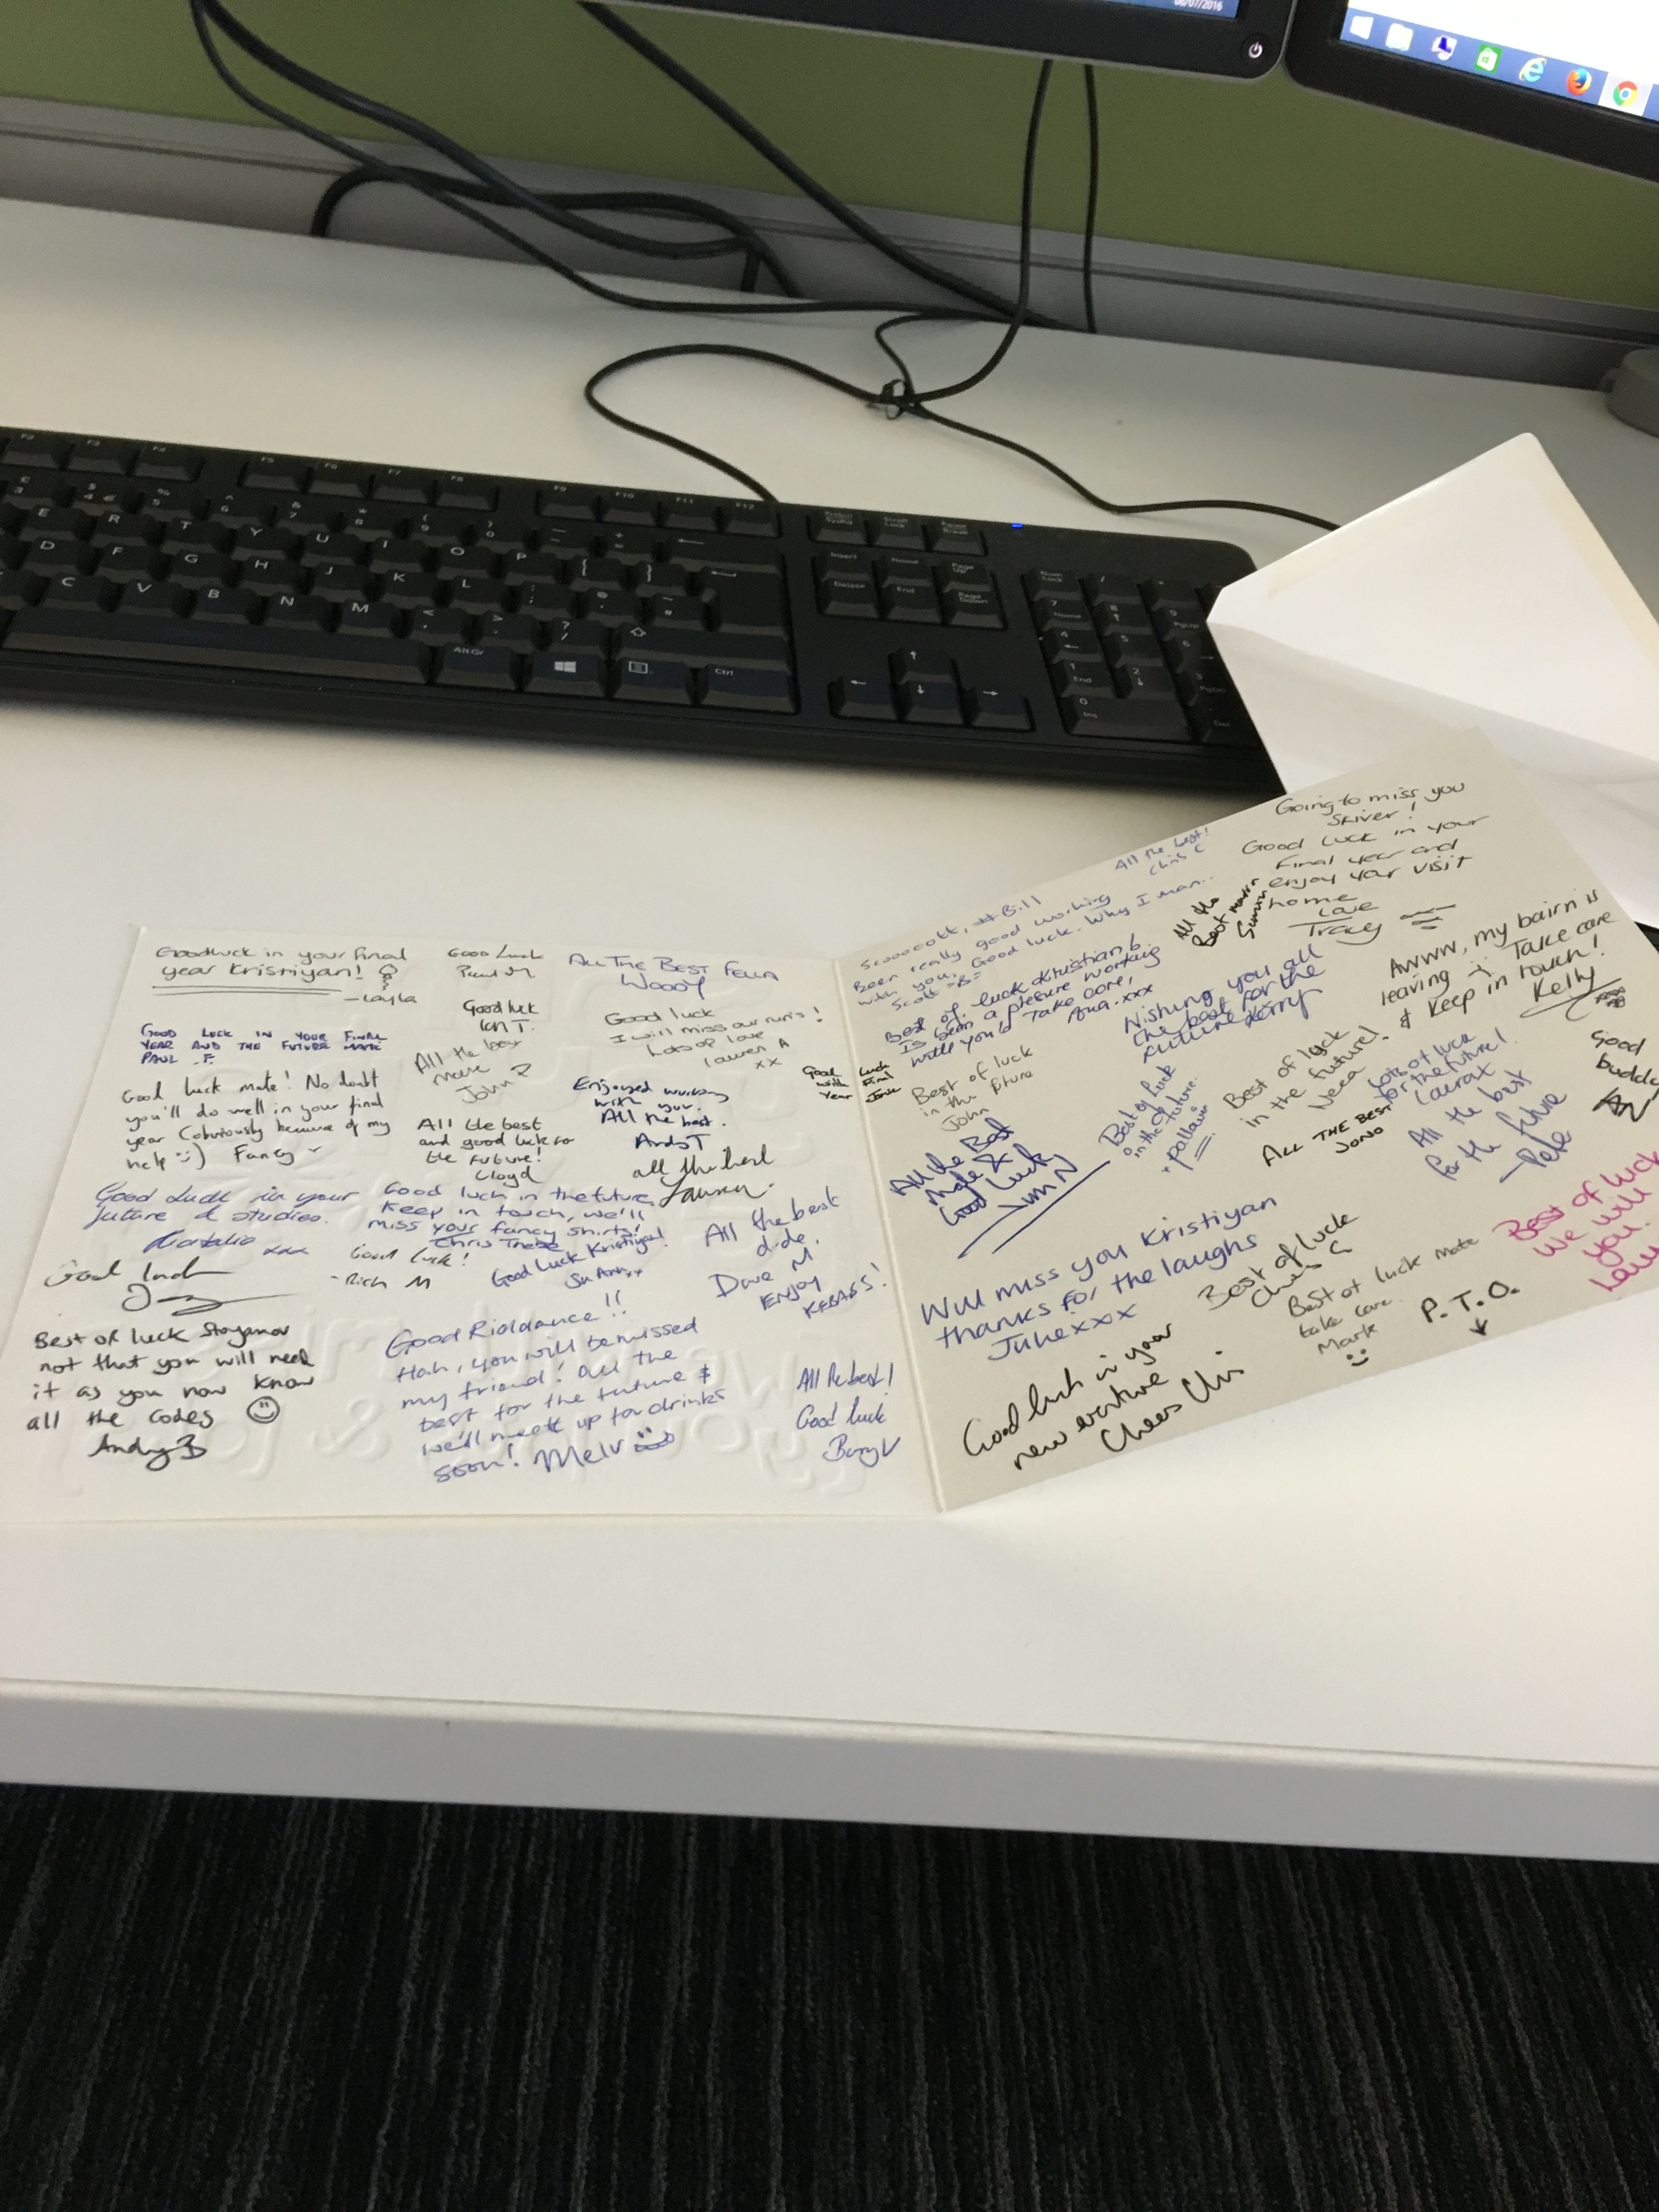 06/07/2016
Goodluck in your final
year Kristiyan!
- Layla
Good Luck
Paul M
All The Best Fella
Woody
Good luck
Ian T.
Good luck
I will miss our run's!
Lots of love
Lauren A
xx
GOOD LUCK IN YOUR FINAL
YEAR AND THE FUTURE MATE
PAUL .F.
All the best
mate
John
Good luck mate! No doubt
you'll do well in your final
year (obviously because of my
help :)) Fancy
Enjoyed working
with you.
All the best.
Andy T
All the best
and good luck for
the future!
Lloyd
all the best
Good Luck in your
future & studies.
Natalie xxx
Good luck in the future,
Keep in touch, we'll
miss your fancy shirts!
Chris
Good Luck
Good Luck!
- Rich M
Good Luck Kristiyan!
Su Ann xx
All the best
dude.
Dave M
Enjoy
KEBABS!
Best of luck Stoyanov
not that you will need
it as you now know
all the codes ☺
Andy B
Good Riddance!!
Hah, you will be missed
my friend! All the
best for the future &
we'll meet up for drinks
soon! Melv
All the best!
Good luck
Barry V
Good Luck
with Final
Year
All the best!
Chris C
Scoooott, #Bill
Been really good working
with you, Good luck. Why I man..
Scott =B=
Going to miss you
Skiver!
Good luck in your
Final year and
enjoy your visit
home
Love
Tracy
All the
Best
Best of luck Khristian b.
Is been a plesure working
with you! Take care,
Ana. xxx
Wishing you all
the best for the
future Kerry
Awww, my bairn is
leaving :( Take care
& keep in touch!
Kelly
Best of luck
in the future
John
Best of luck
in the future.
- Pallavi
Best of luck
in the future!
Neea
Lots of luck
for the future!
Laura x
Good
buddy
ALL THE BEST
JONO
All the best
for the future
- Pete
All the Best
Mate &
Good Luck
Jim N
Will miss you Kristiyan
thanks for the laughs
Julie xxx
Best of luck
Chris C
Best of luck mate
take care.
Mark
Best of luck
We will
you.
P.T.O.
Good luck in your
new venture
Cheers Chris